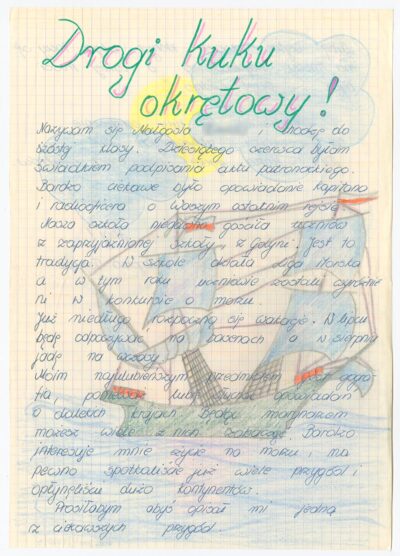 Drogi kuku
okrętowy!
Nazywam się Małgosia i chodzę do
szóstej klasy. Dziesiątego czerwca byłam
świadkiem podpisania aktu patronackiego.
Bardzo ciekawe było opowiadanie kapitana
i radiooficera o Waszym ostatnim rejsie.
Nasza szkoła niedawno gościła uczniów
z zaprzyjaźnionej szkoły z Gdyni. Jest to
tradycja. W szkole działa Liga Morska
a w tym roku uczniowie zostali wyróżnie
ni w konkursie o morzu.
Już niedługo rozpoczną się wakacje. W lipcu
będę odpoczywać na basenach a w sierpniu
jadę na wczasy.
Moim najulubieńszym przedmiotem jest geogra
fia, ponieważ lubię słuchać opowiadań
o dalekich krajach. Będąc marynarzem
możesz wiele z nich zobaczyć. Bardzo
interesuje mnie życie na morzu, na
pewno spotkaliście już wiele przygód i
opłynęliście dużo kontynentów.
Prosiłabym abyś opisał mi jedną
z ciekawszych przygód.